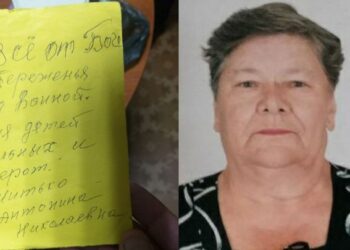 всё от Бога
бережения
Войной.
детей
льных и
ерот.
нитько
Антонина
Николаевна